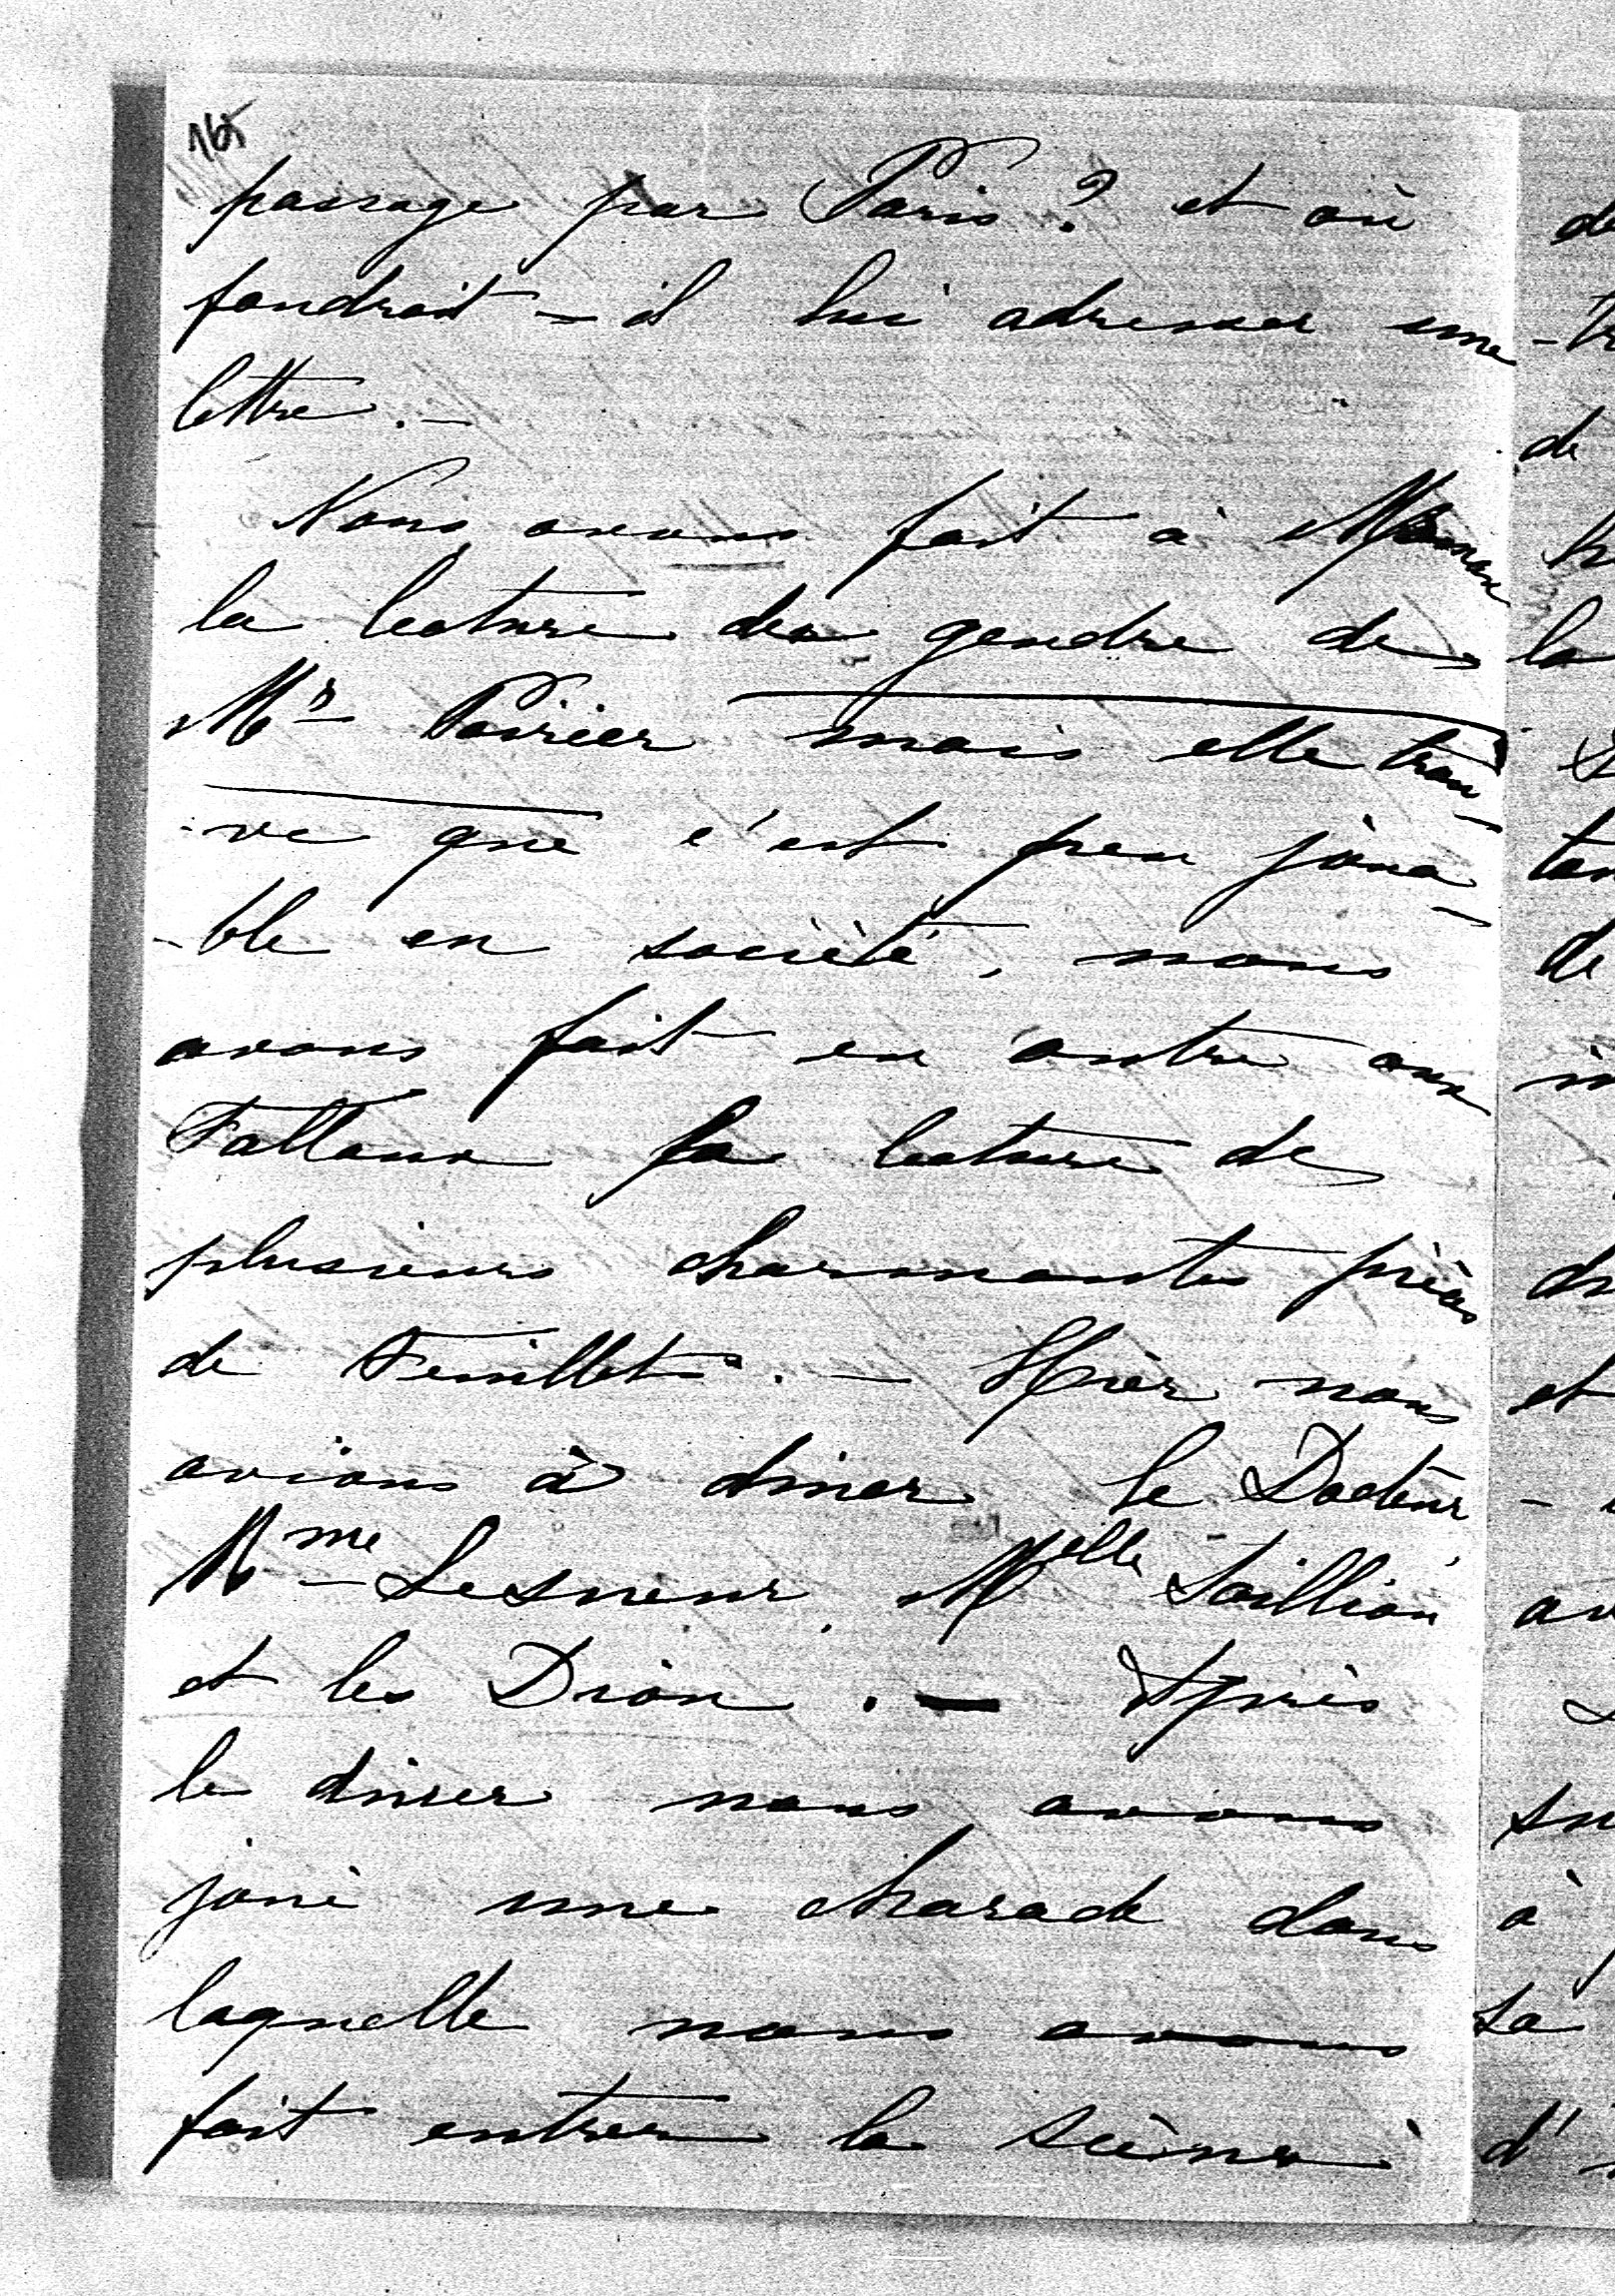 165
passage par Paris ? et où
faudrait-il lui adresser une
lettre. -
Nous avons fait à Maman
la lecture du gendre de
Mr Poirier mais elle trou-
-ve que c'est peu joua-
-ble en société, nous
avons fait en outre aux
Falloux la lecture de
plusieurs charmantes pièces
de Feuillet. - Hier nous
avions à diner le Docteur
Mme Lesueur, Melle
et les Dion. - Après
le diner nous avons
joué une charade dans
laquelle nous avons
fait entrer la scène